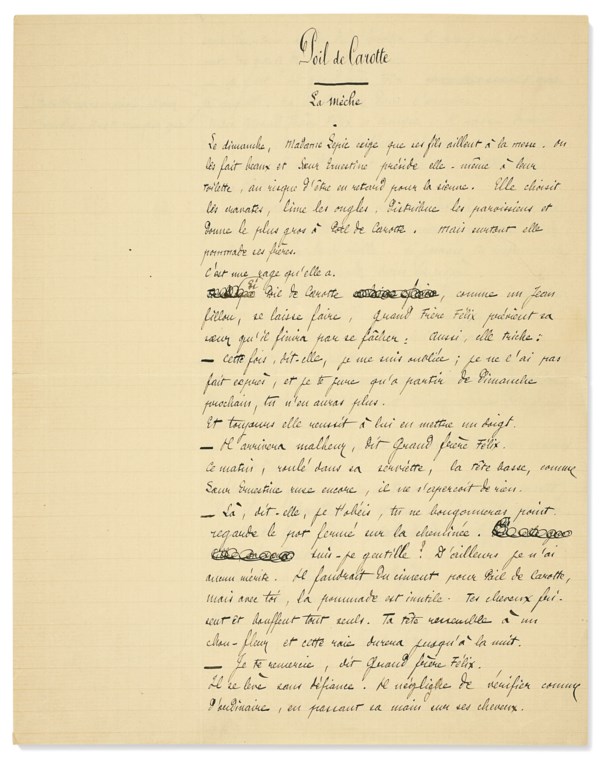 Poil de Carotte
La mèche
Le dimanche, Madame Lepic exige que ses fils aillent à la messe. On
les fait beaux et Sœur Ernestine préside elle-même à leur
toilette, au risque d'être en retard pour la sienne. Elle choisit
les cravates, lime les ongles, distribue les paroissiens et
donne le plus gros à Poil de Carotte. Mais surtout elle
pommade ses frères.
C'est une rage qu'elle a.
Si Poil de Carotte, comme un Jean
fillou, se laisse faire, Grand Frère Félix prévient sa
sœur qu'il finira par se fâcher: Aussi, elle triche:
— Cette fois, dit-elle, je me suis oubliée; je ne l'ai pas
fait exprès, et je te jure qu'à partir de Dimanche
prochain, tu n'en auras plus.
Et toujours elle réussit à lui en mettre un doigt.
— Il arrivera malheur, dit Grand frère Félix.
Ce matin, roulé dans sa serviette, la tête basse, comme
Sœur Ernestine ruse encore, il ne s'aperçoit de rien.
— Là, dit-elle, je t'obéis, tu ne bougonneras point.
regarde le pot fermé sur la cheminée.
suis-je gentille? D'ailleurs je n'ai
aucun mérite. Il faudrait du ciment pour Poil de Carotte,
mais avec toi, la pommade est inutile. Tes cheveux fri-
sent et bouffent tout seuls. Ta tête ressemble à un
chou-fleur et cette raie durera jusqu'à la nuit.
— Je te remercie, dit Grand frère Félix.
Il se lève sans défiance. Il néglighe de vérifier comme
d'ordinaire, en passant sa main sur ses cheveux.